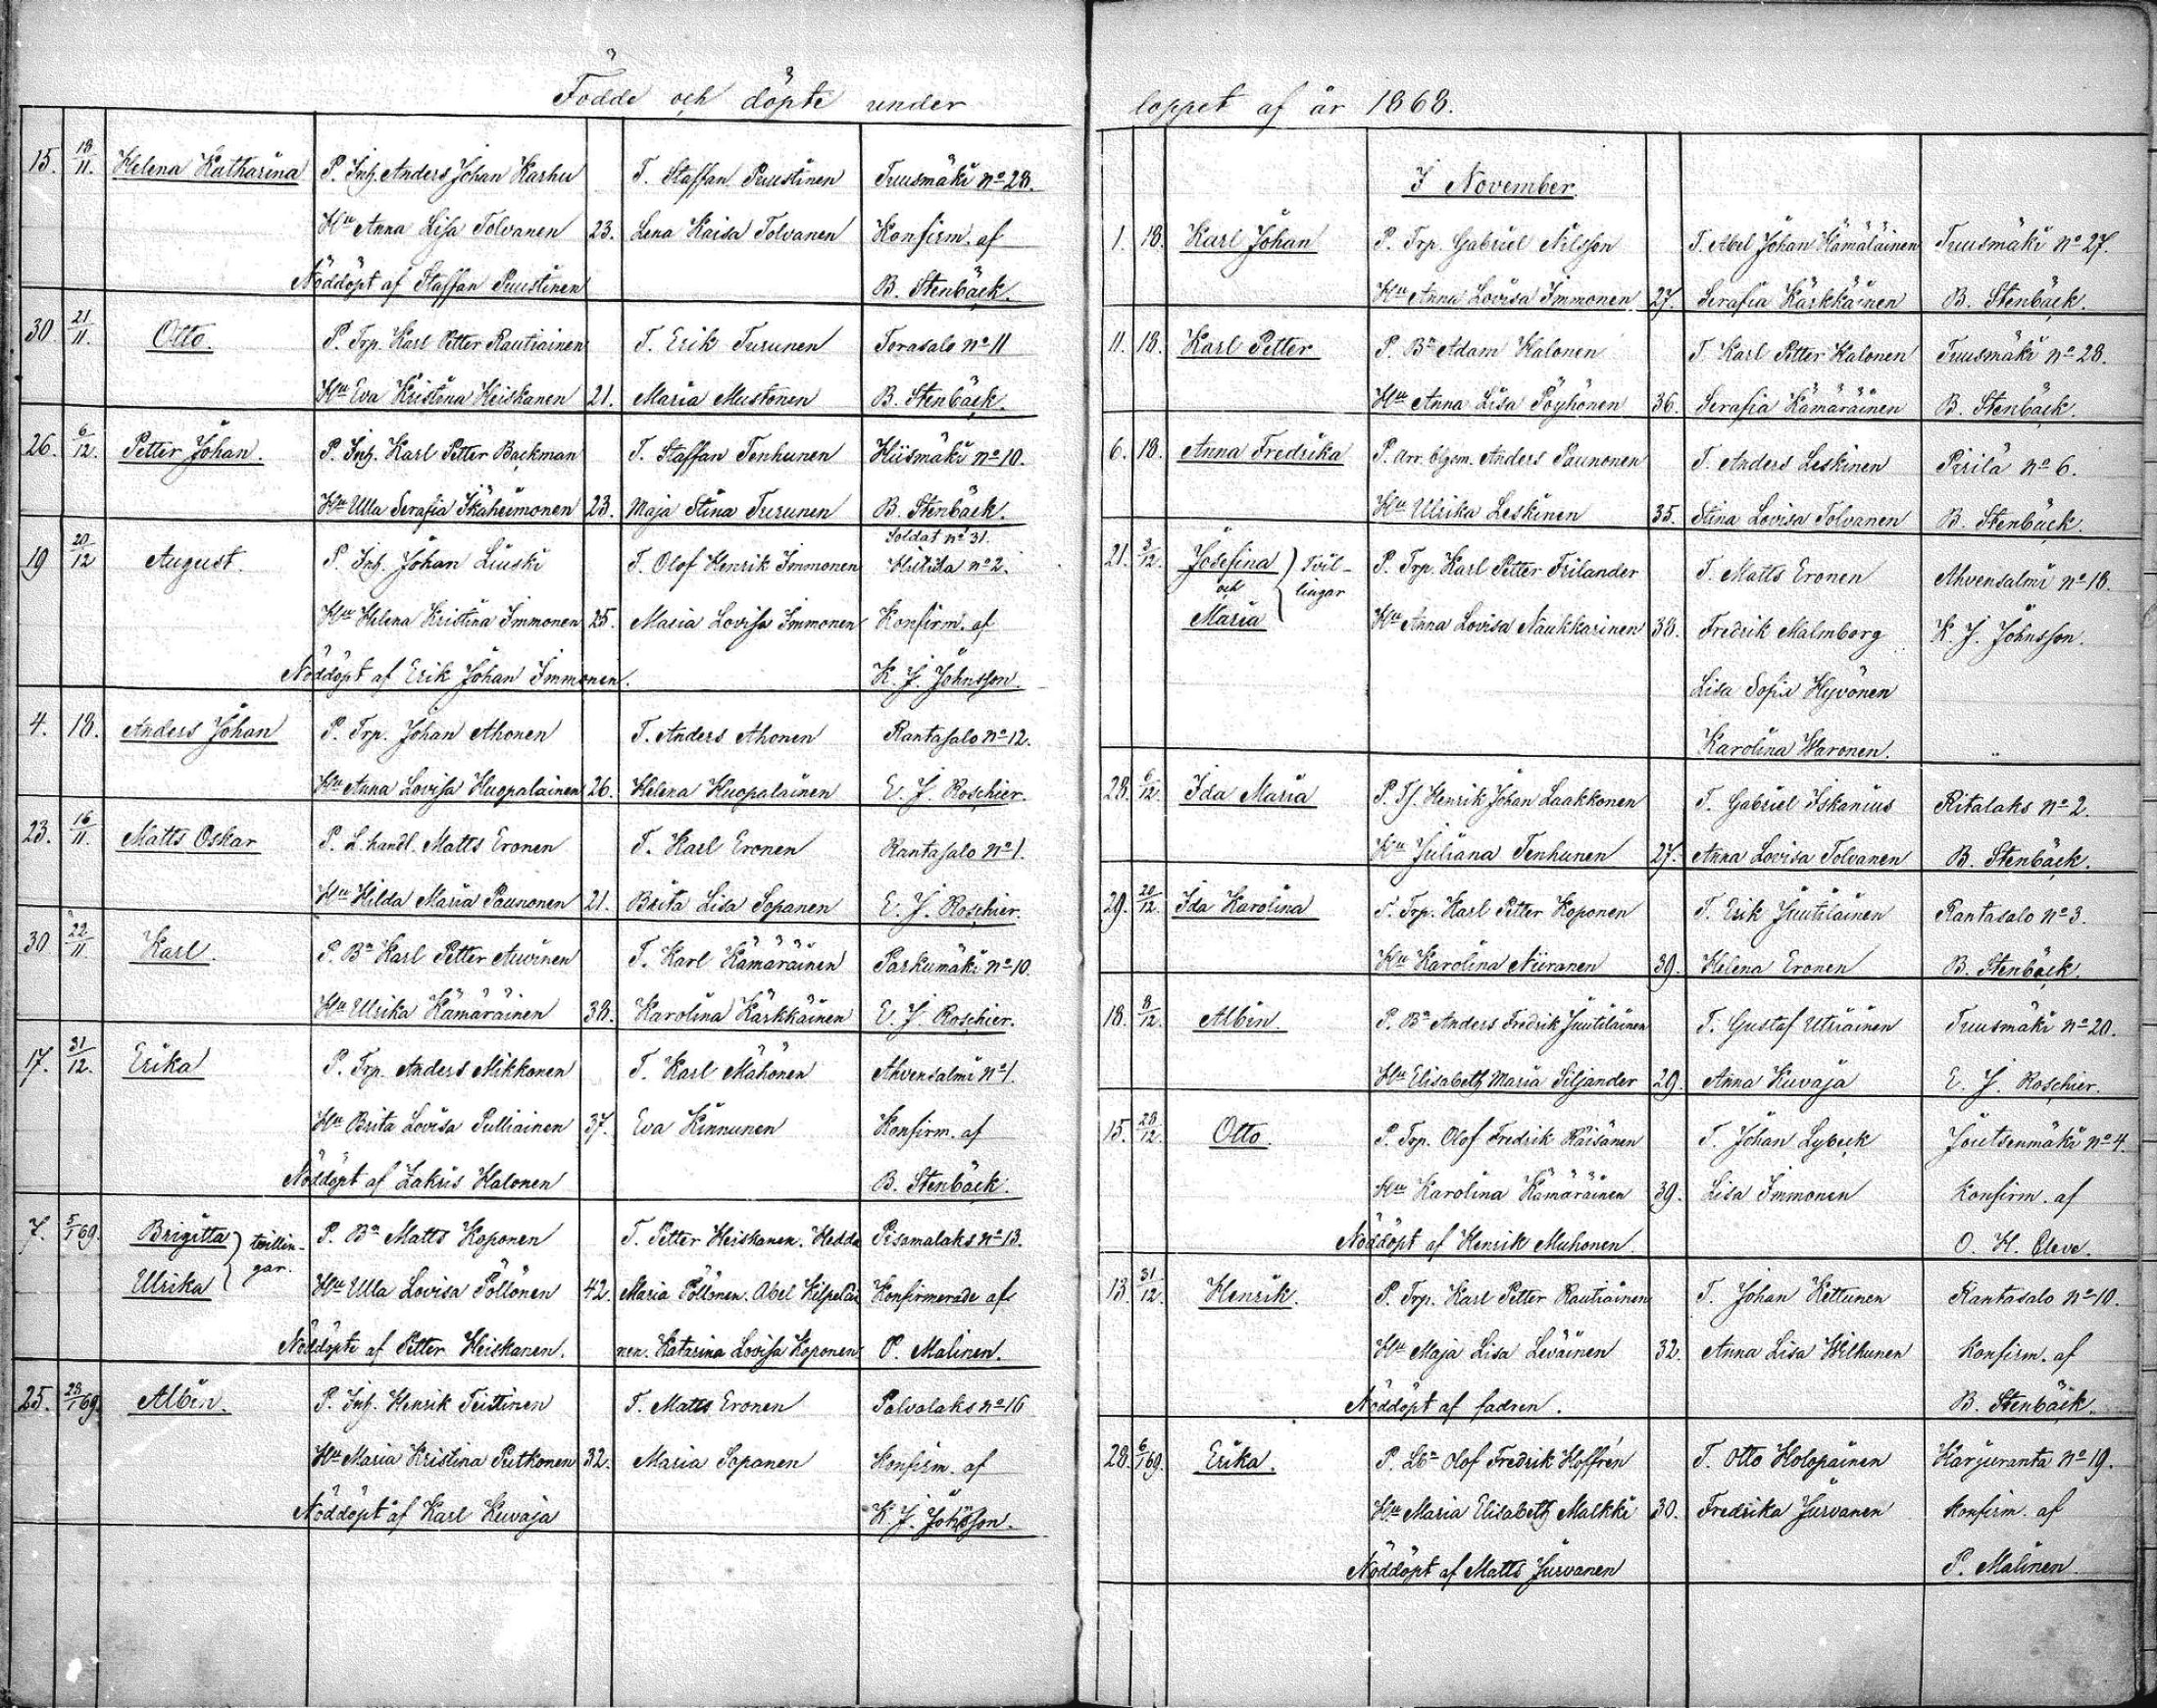 Födde och döpte under
15. 18/11. Helena Katharina P. Inh. Anders Johan Karhu T. Staffan Puustinen Tuusmäki No 28.
Hu Anna Lisa Tolvanen 23. Lena Kaisa Tolvanen Konfirm. af
Nöddöpt af Staffan Puustinen B. Stenbäck.
30. 21/11. Otto. P. Trp. Karl Petter Rautiainen T. Erik Turunen Torasalo No 11
Hu Eva Kristina Heiskanen 21. Maria Mustonen B. Stenbäck.
26. 6/12. Petter Johan. P. Inh. Karl Petter Backman T. Staffan Tenhunen Hiismäki No 10.
Hu Ulla Serafia Ikäheimonen 23. Maja Stina Turunen B. Stenbäck.
Soldat No 31.
19 20/12 August. P. Inh. Johan Liuski T. Olof Henrik Immonen No 2.
Hu Helena Kristina Immonen 25. Maria Lovisa Immonen Konfirm. af
Nöddöpt af Erik Johan Immonen. K. J. Johnsson.
4. 18. Anders Johan P. Trp. Johan Ahonen T. Anders Ahonen Rantasalo No 12.
Hu Anna Lovisa Huopalainen 26. Helena Huopalainen E. J. Roschier.
23. 16/11. Matts Oskar P. L. handl. Matts Eronen T. Karl Eronen Rantasalo No 1.
Hu Hilda Maria Paunonen 21. Brita Lisa Sopanen E. J. Roschier.
30 22/11. Karl. P. Bn Karl Petter Auvinen T. Karl Kämäräinen Parkumäki No 10.
Hu Ulrika Kämäräinen 38. Karolina Kärkkäinen E. J. Roschier.
17. 31/12. Erika P. Trp. Anders Mikkonen T. Karl Mähönen Ahvensalmi No 1.
Hu Brita Lovisa Pulliainen 37. Eva Kinnunen Konfirm. af
Nöddöpt af Zakris Halonen B. Stenbäck.
7. 5/1 69. Brigitta tvillin- P. Bn Matts Koponen T. Petter Heiskanen. Hedda Pisamalaks No 13.
Ulrika gar. Hu Ulla Lovisa Pöllönen 42. Maria Pöllönen. Abel Kilpeläi Konfirmerade af
Nöddöpte af Petter Heiskanen. nen. Katarina Lovisa Koponen P. Malinen.
25. 28/1 69. Albin. P. Inh. Henrik Teittinen T. Matts Eronen Palvalaks No 16
Hu Maria Kristina Putkonen 32. Maria Sopanen Konfirm. af
Nöddöpt af Karl Kuvaja K. J. Johnsson.
loppet af år 1868.
I November.
1. 18. Karl Johan P. Trp. Gabriel Nilsson T. Abel Johan Hämäläinen Tuusmäki No 27.
Hu Anna Lovisa Immonen 27. Serafia Kärkkäinen B. Stenbäck.
11. 18. Karl Petter P. Bn Adam Halonen T. Karl Petter Halonen Tuusmäki No 28.
Hu Anna Lisa Pöyhönen 36. Serafia Kämäräinen B. Stenbäck.
6. 18. Anna Fredrika P. Arr. blgsm. Anders Paunonen T. Anders Leskinen Pirilä No 6.
Hu Ulrika Leskinen 35. Stina Lovisa Tolvanen B. Stenbäck.
21. 3/12. Josefina Tvil- P. Trp. Karl Petter Frilander T. Matts Eronen Ahvensalmi No 18.
och lingar
Maria Hu Anna Lovisa Naukkarinen 38. Fredrik Malmborg K. J. Johnsson.
Lisa Sofia Hyvönen
Karolina Waronen. "
28. 6/12. Ida Maria P. Tf. Henrik Johan Laakkonen T. Gabriel Iskanius Ritalaks No 2.
Hu Juliana Tenhunen 27. Anna Lovisa Tolvanen B. Stenbäck.
29. 20/12. Ida Karolina P. Trp. Karl Petter Koponen T. Erik Juutilainen Rantasalo No 3.
Hu Karolina Niiranen 39. Helena Eronen B. Stenbäck.
18. 8/12. Albin. P. Bn Anders Fredrik Juutilainen T. Gustaf Utriainen Tuusmäki No 20.
Hu Elisabeth Maria Siljander 29. Anna Kuvaja E. J. Roschier.
15. 28/12. Otto. P. Trp. Olof Fredrik Räisänen T. Johan Lybeck Joutsenmäki No 4.
Hu Karolina Kämäräinen 39. Lisa Immonen Konfirm. af
Nöddöpt af Henrik Muhonen O. H. Cleve.
13. 31/12. Henrik. P. Trp. Karl Petter Rautiainen T. Johan Kettunen Rantasalo No 10.
Hu Maja Lisa Leväinen 32. Anna Lisa Wilkunen Konfirm. af
Nöddöpt af fadren. B. Stenbäck.
28. 6/1 69. Erika. P. Lbn Olof Fredrik Hoffrén T. Otto Holopainen Karjuranta No 19.
Hu Maria Elisabeth Malkki 30. Fredrika Jurvanen Konfirm. af
Nöddöpt af Matts Jurvanen P. Malinen.